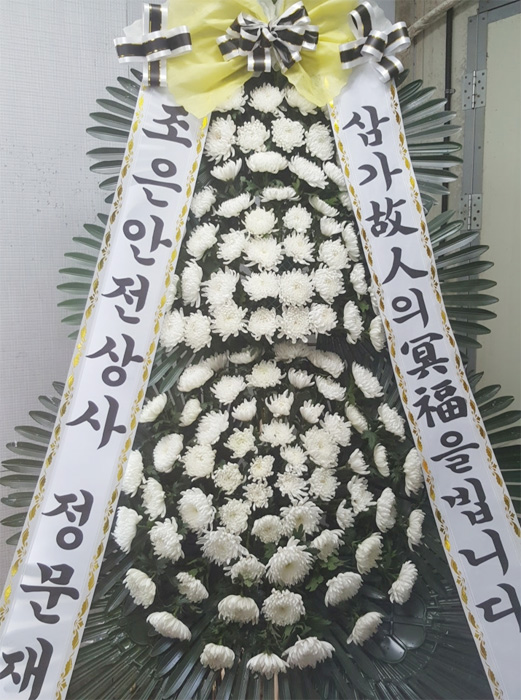 조은안전상사 정문재
삼가故人의冥福을빕니다